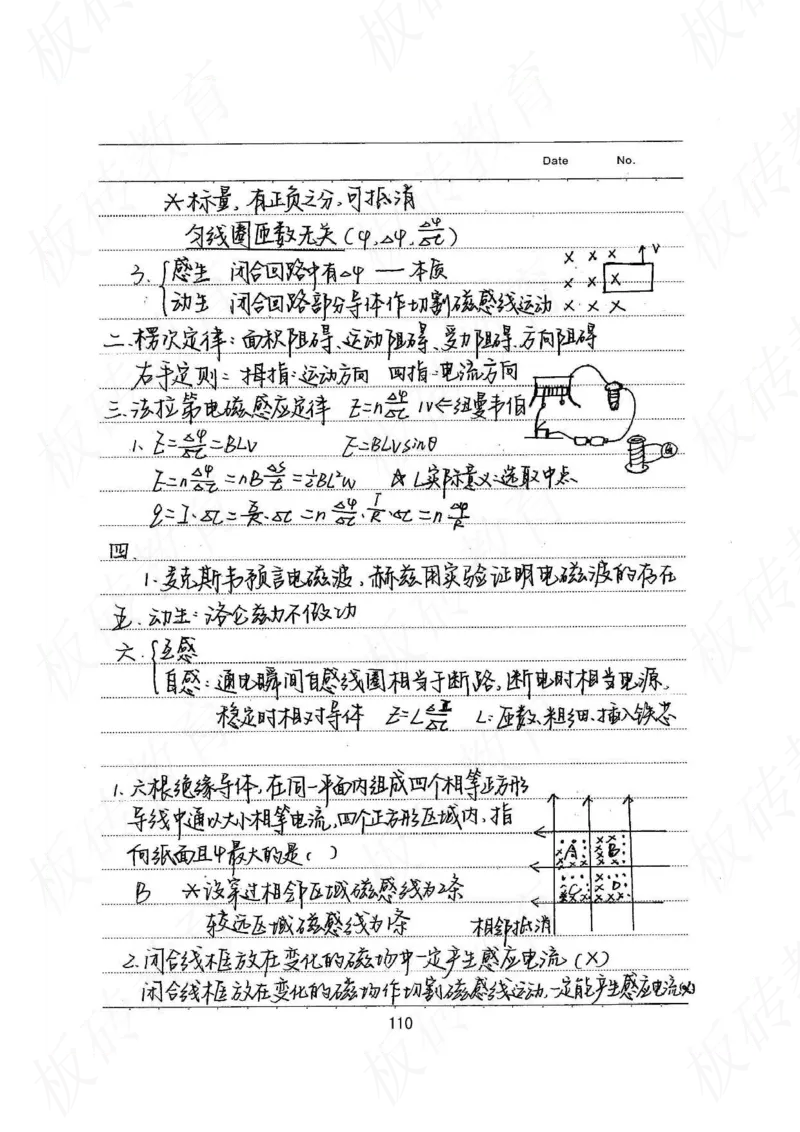 Date No.
*标量,有正负之分,可抵消
匀线圈匝数无关(φ,Δφ,Δφ/Δt)
3. 感生 闭合回路中有Δφ — 本质
动生 闭合回路部分导体作切割磁感线运动
v
二.楞次定律:面积阻碍、运动阻碍、受力阻碍、方向阻碍
右手定则:拇指:运动方向 四指:电流方向
三.法拉第电磁感应定律 E=nΔφ/Δt 1V←纽曼韦伯
1. E=Δφ/Δt=BLV E=BLVsinθ
E=nΔφ/Δt=nBΔS/t=½BL²w ☆L实际意义:选取中点
G
四.
1.麦克斯韦预言电磁波,赫兹用实验证明电磁波的存在
五.动生:洛仑兹力不做功
六.互感
自感:通电瞬间自感线圈相当于断路,断电时相当电源,
稳定时相对导体 E=LΔI/Δt L:匝数、粗细、插入铁芯
1.六根绝缘导体,在同一平面内组成四个相等正方形
导线中通以大小相等电流,四个正方形区域内,指
何纸面且φ最大的是( )
A B
C D
B *设穿过相邻区域磁感线为2条
较远区域磁感线为1条 相邻抵消
2.闭合线框放在变化的磁场中一定产生感应电流(×)
闭合线框放在变化的磁场作切割磁感线运动,一定能产生感应电流(×)
110
板砖教育